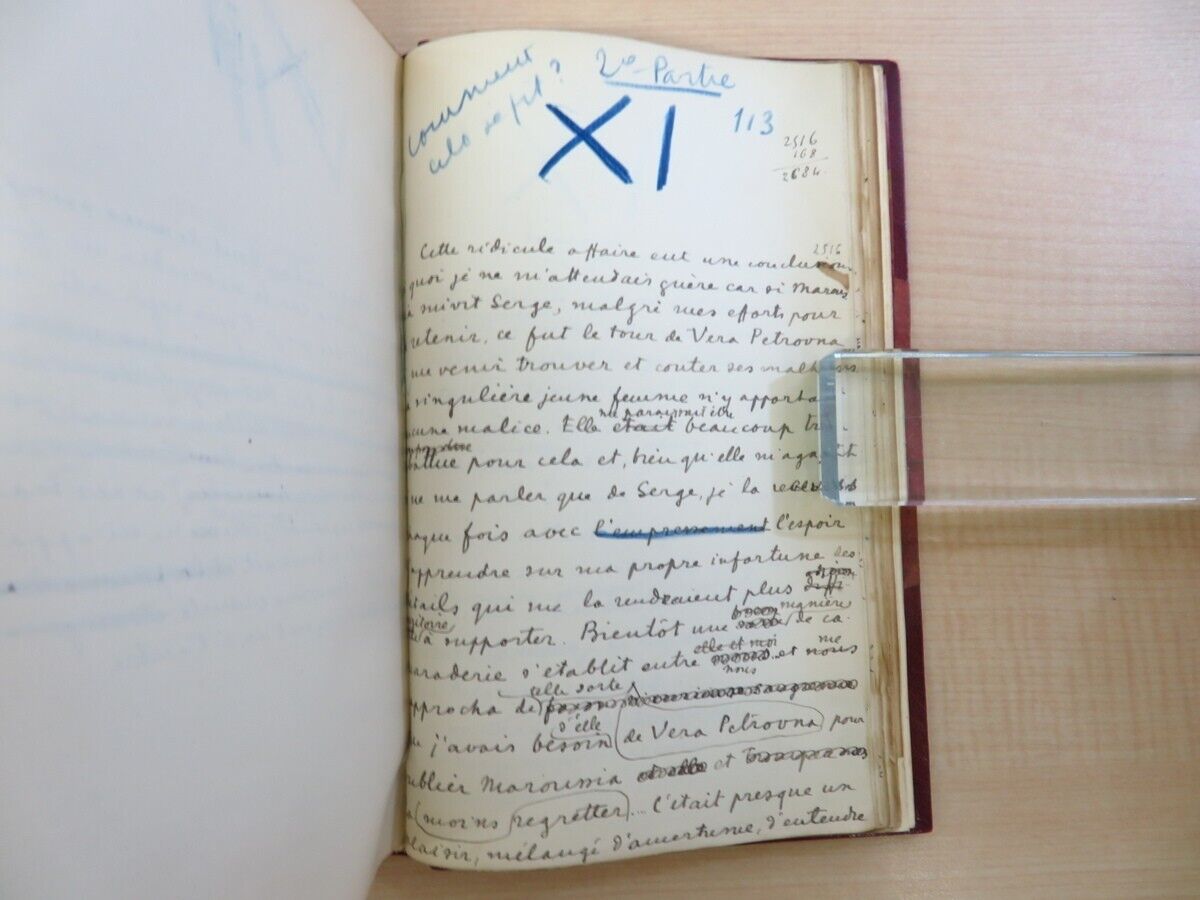 comment
cela se fit ?
2e Partie
XI
113
2516
168
2684
2516
Cette ridicule affaire eut une conclusion
quoi je ne m'attendais guère car si Marous
suivit Serge, malgré mes efforts pour
retenir, ce fut le tour de Vera Petrovna
me venir trouver et conter ses malheurs
singulière jeune femme n'y apportait
cune malice. me paraissait être
Elle était beaucoup trop
battue pour cela et, bien qu'elle m'agaçât
ne me parler que de Serge, je la recevais
haque fois avec l'empressement l'espoir
apprendre sur ma propre infortune des
tails qui me la rendraient plus
à supporter. Bientôt une manière de ca-
elle et moi me
araderie s'établit entre et nous
nous
celle sorte
pprocha de
d'elle
j'avais besoin de Vera Petrovna pour
ublier Maroussia et
moins regretter... C'était presque un
plaisir, mélangé d'amertume, d'entendre